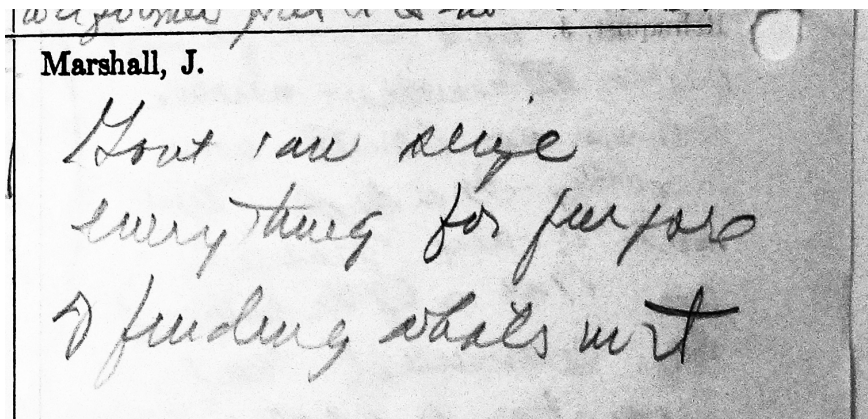 Marshall, J.
Govt can seize
everything for purpose
of finding whats in it